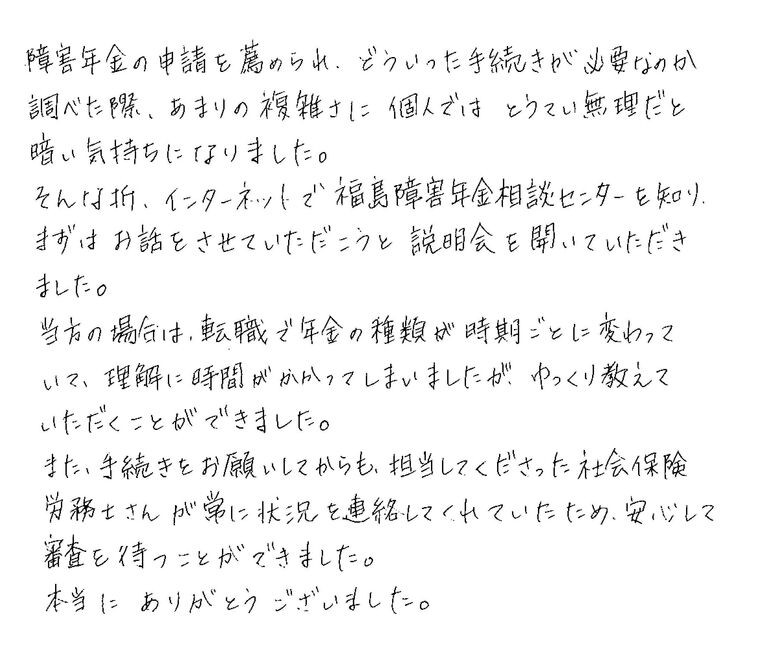 障害年金の申請を薦められ、どういった手続きが必要なのか
調べた際、あまりの複雑さに個人ではとうてい無理だと
暗い気持ちになりました。
そんな折、インターネットで福島障害年金相談センターを知り、
まずはお話をさせていただこうと説明会を開いていただき
ました。
当方の場合は、転職で年金の種類が時期ごとに変わって
いて、理解に時間がかかってしまいましたが、ゆっくり教えて
いただくことができました。
また、手続きをお願いしてからも、担当してくださった社会保険
労務士さんが常に状況を連絡してくれていたため、安心して
審査を待つことができました。
本当にありがとうございました。